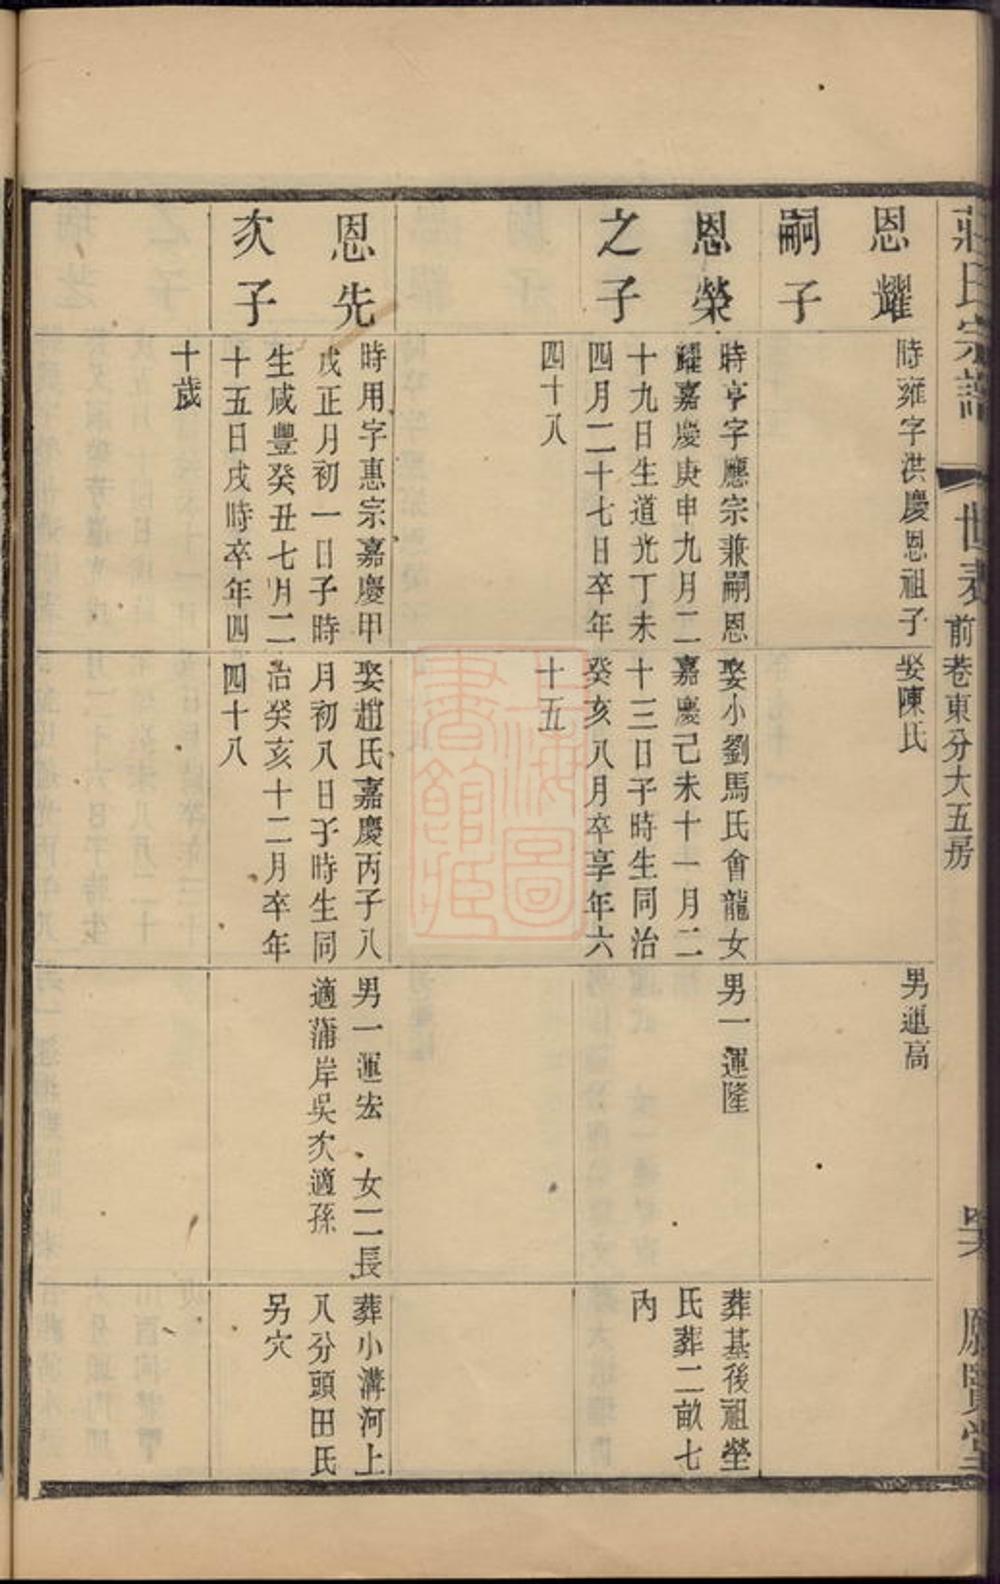 莊氏宗譜
世表
前巷東分大五房
恩耀
嗣子
時雍字洪慶恩祖子
娶陳氏
男運高
恩榮
之子
時亨字應宗兼嗣恩
耀嘉慶庚申九月二
十九日生道光丁未
四月二十七日卒年
四十八
娶小劉馬氏會龍女
嘉慶己未十一月二
十三日子時生同治
癸亥八月卒享年六
十五
男一運隆
葬基後祖塋
氏葬二畝七
內
恩先
次子
時用字惠宗嘉慶甲
戌正月初一日子時
生咸豐癸丑七月二
十五日戌時卒年四
十歲
娶趙氏嘉慶丙子八
月初八日子時生同
治癸亥十二月卒年
四十八
男一運宏 女二長
適蒲岸吳次適孫
葬小溝河上
八分頭田氏
另穴